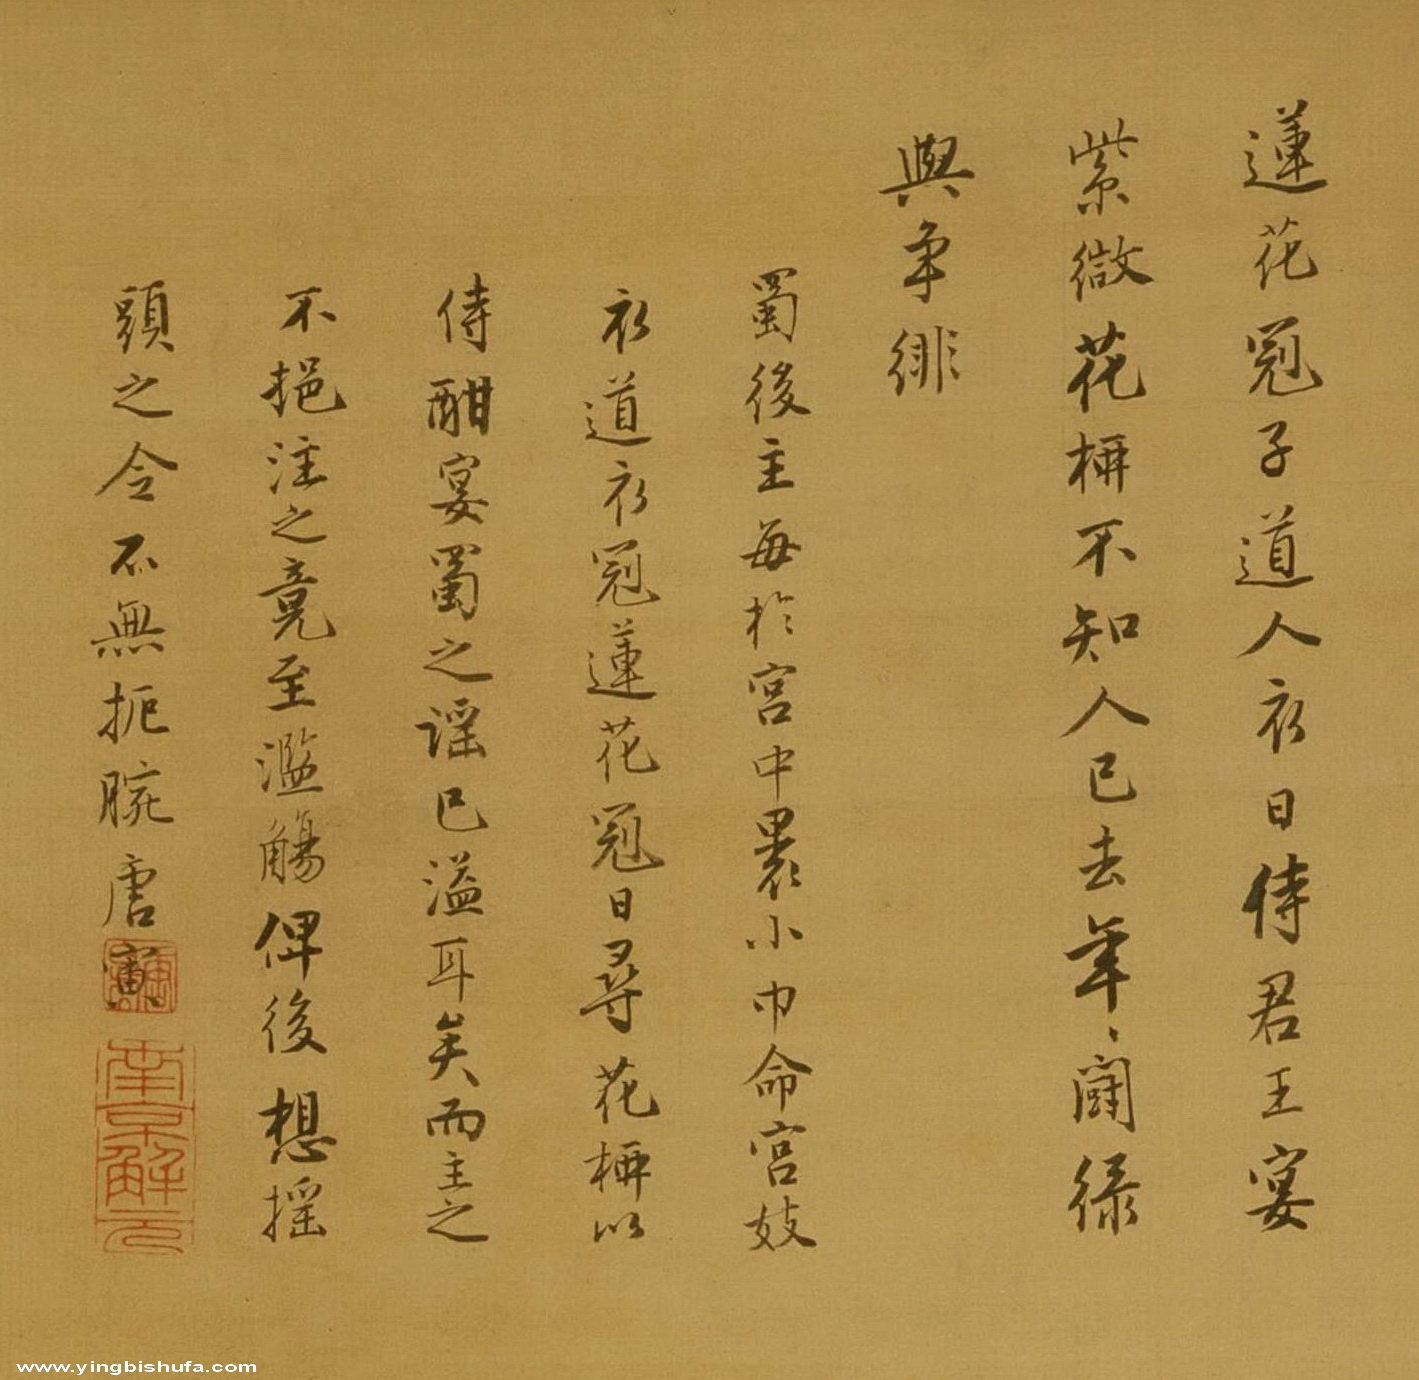 蓮花冠子道人衣日侍君王宴
紫微花柳不知人已去年〻鬪綠
與爭緋
蜀後主每於宮中裹小巾命宮妓
衣道衣冠蓮花冠日尋花柳以
侍酣宴蜀之謡已溢耳矣而主之
不挹注之竟至濫觴俾後想摇
頭之令不無扼腕唐寅
唐寅
南京解元
www.yingbishufa.com